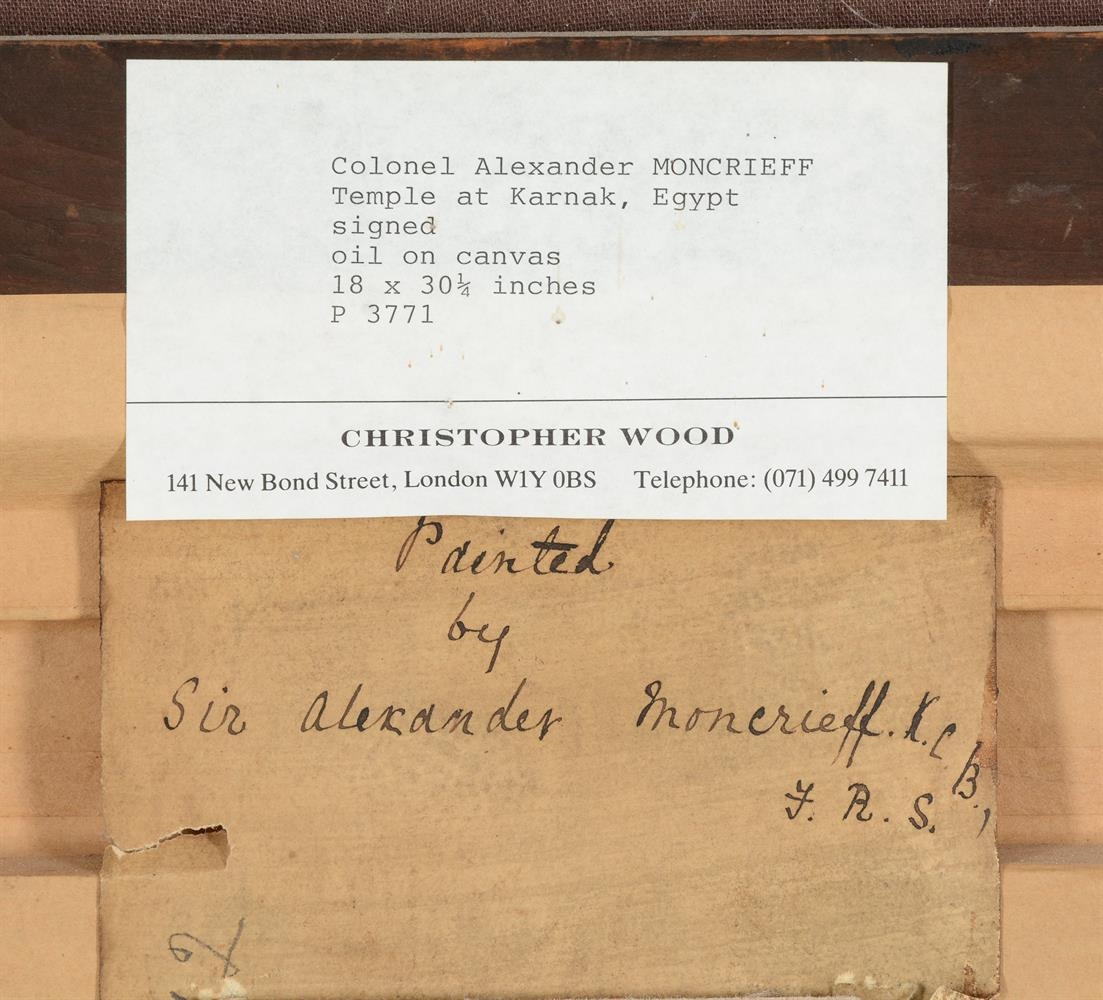 Colonel Alexander MONCRIEFF
Temple at Karnak, Egypt
signed
oil on canvas
18 x 30¼ inches
P 3771
CHRISTOPHER WOOD
141 New Bond Street, London W1Y 0BS Telephone: (071) 499 7411
Painted
by
Sir Alexander Moncrieff. K.C.B.,
F. R. S.